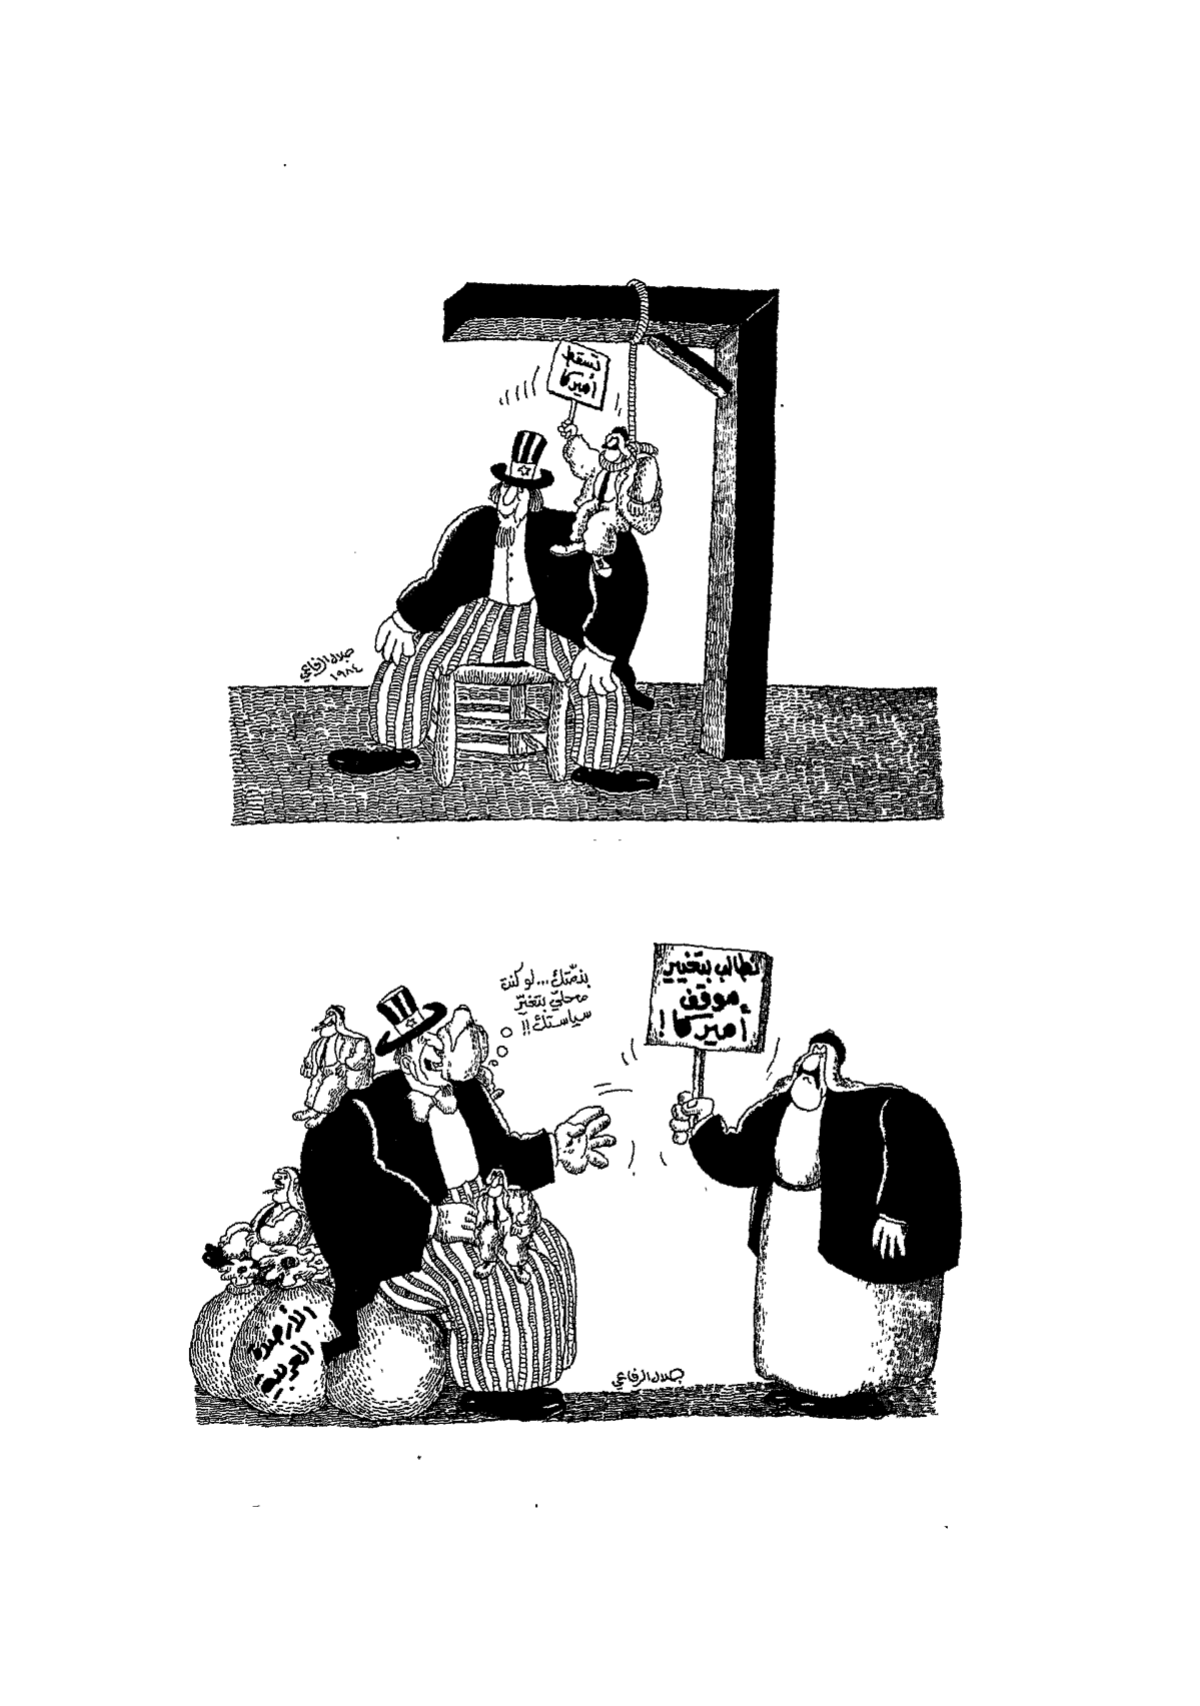 تسقط
أميركا
جلال الرفاعي
١٩٨٤
نطالب بتغيير
موقف
أميركا !
بذمّتك... لو كنت
محلّي بتغيّر
سياستك !!
الأرصدة
العربية
جلال الرفاعي